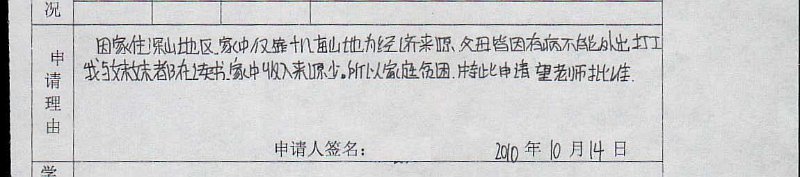 况
申请理由
因家住深山地区,家中仅靠十几亩山地为经济来源,父母皆因有病不能外出打工
我与妹妹都在读书.家中收入来源少。所以家庭贫困.特此申请 望老师批准.
申请人签名: 2010 年 10 月 14 日
学